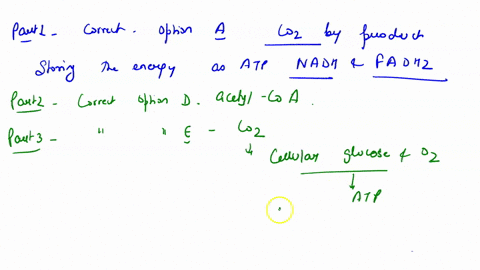 Part1 - Correct. Option A CO2 by product
Storing the energy as ATP NADH & FADH2
Part2 - Correct option D. acetyl-CoA.
Part3 - " " E - CO2
Cellular glucose & O2
ATP